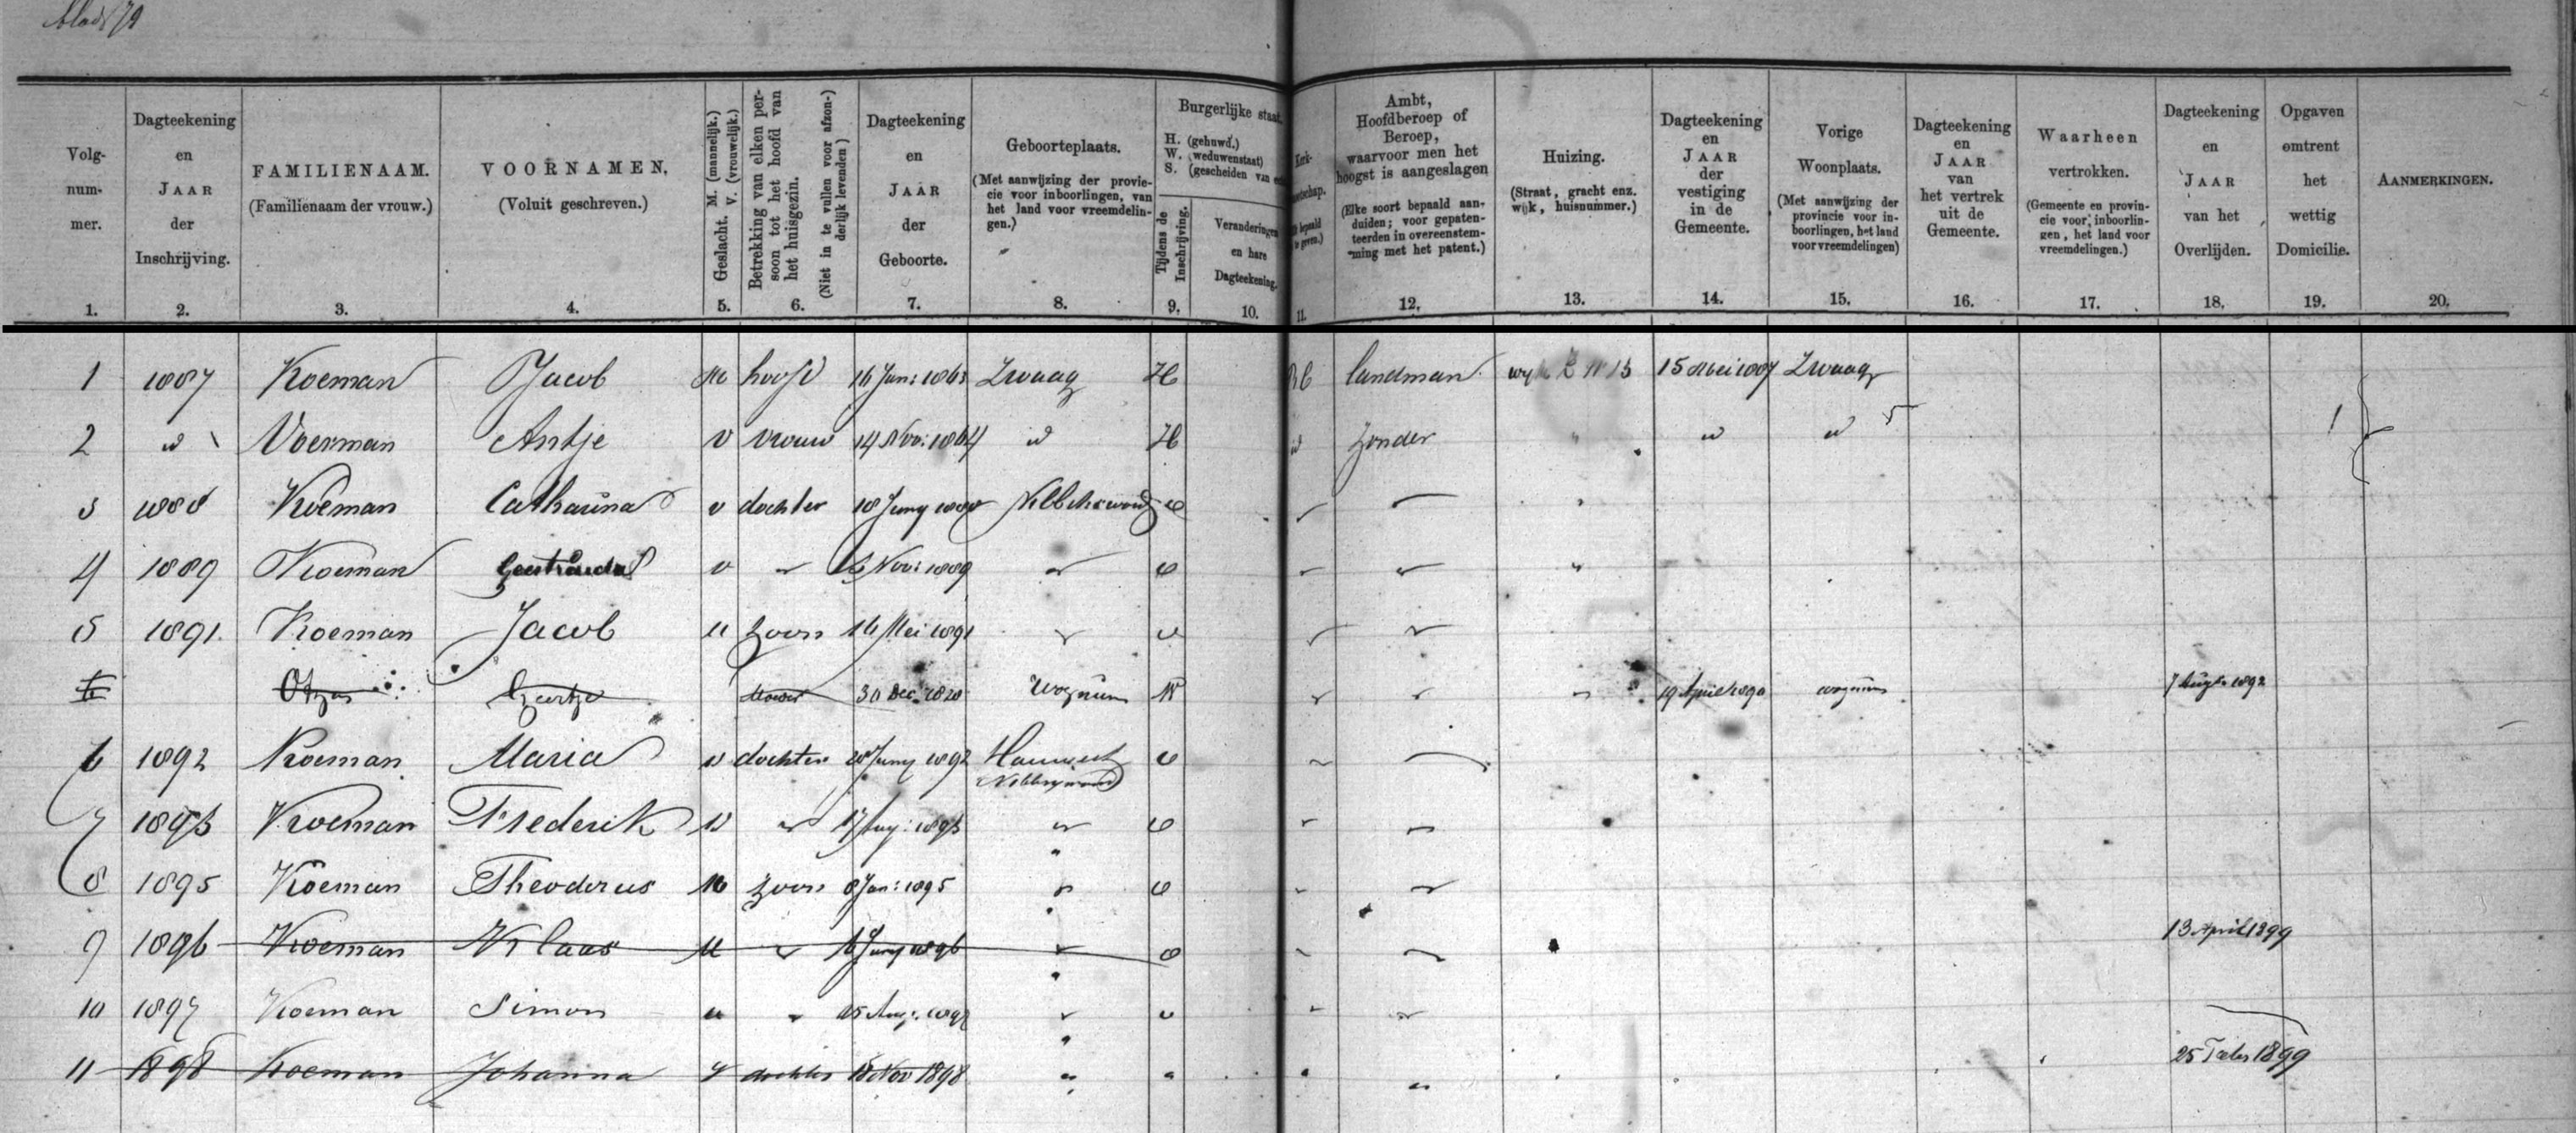 blad 79
Volg-
num-
mer.
1.
Dagteekening
en
JAAR
der
Inschrijving.
2.
FAMILIENAAM.
(Familienaam der vrouw.)
3.
VOORNAMEN,
(Voluit geschreven.)
4.
Geslacht. M. (mannelijk.)
V. (vrouwelijk.)
5.
Betrekking van elken per-
soon tot het hoofd van
het huisgezin.
(Niet in te vullen voor afzon-
derlijk levenden)
6.
Dagteekening
en
JAAR
der
Geboorte.
7.
Geboorteplaats.
(Met aanwijzing der provin-
cie voor inboorlingen, van
het land voor vreemdelin-
gen.)
8.
Burgerlijke staat.
H. (gehuwd.)
W. (weduwenstaat)
S. (gescheiden van
Tijdens de
Inschrijving.
9.
Veranderingen
en hare
Dagteekening.
10.
Kerk-
11.
Ambt,
Hoofdberoep of
Beroep,
waarvoor men het
hoogst is aangeslagen
(Elke soort bepaald aan-
duiden; voor gepaten-
teerden in overeenstem-
ming met het patent.)
12.
Huizing.
(Straat, gracht enz.
wijk, huisnummer.)
13.
Dagteekening
en
JAAR
der
vestiging
in de
Gemeente.
14.
Vorige
Woonplaats.
(Met aanwijzing der
provincie voor in-
boorlingen, het land
voor vreemdelingen)
15.
Dagteekening
en
JAAR
van
het vertrek
uit de
Gemeente.
16.
Waarheen
vertrokken.
(Gemeente en provin-
cie voor inboorlin-
gen, het land voor
vreemdelingen.)
17.
Dagteekening
en
JAAR
van het
Overlijden.
18.
Opgaven
omtrent
het
wettig
Domicilie.
19.
AANMERKINGEN.
20.
1 1887 Koeman Jacob M hoofd 16 Jan: 1863 Zwaag H landman 15 Mei 1887 Zwaag
2 id Voerman Antje V vrouw 14 Nov: 1864 id H id zonder " id id
3 1888 Koeman Catharina v dochter 18 Juny 1888 Nibbixwoud
4 1889 Koeman Geertruida v " Nov: 1889 "
5 1891 Koeman Jacob M zoon 16 Mei 1891 "
Geertje moeder 30 Dec. 1820 Wognum W " " " 19 April 1890 wognum 1892
6 1892 Koeman Maria v dochter Juny 1892 Hauwert
7 1893 Koeman Frederik " 17 Aug: 1893 "
8 1895 Koeman Theodorus M zoon 8 Jan: 1895 "
9 1896 Koeman Klaas M " Juny 1896 " 13 April 1899
10 1897 Koeman Simon M " 25 Aug: 1897 "
11 1898 Koeman Johanna V dochter 18 Nov 1898 " 25 Febr 1899